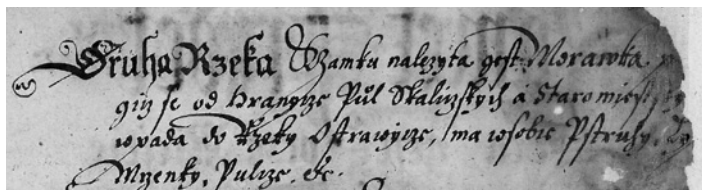 Druha Rzeka K Zamku nalezyta gest Morawka
giz se od Hranycze Pul Skaliczskych a Staromiest
wpada do Rzeky Ostrawycze, ma wsobie Pstruhy,
Mrzenky, Pulcze. &c.